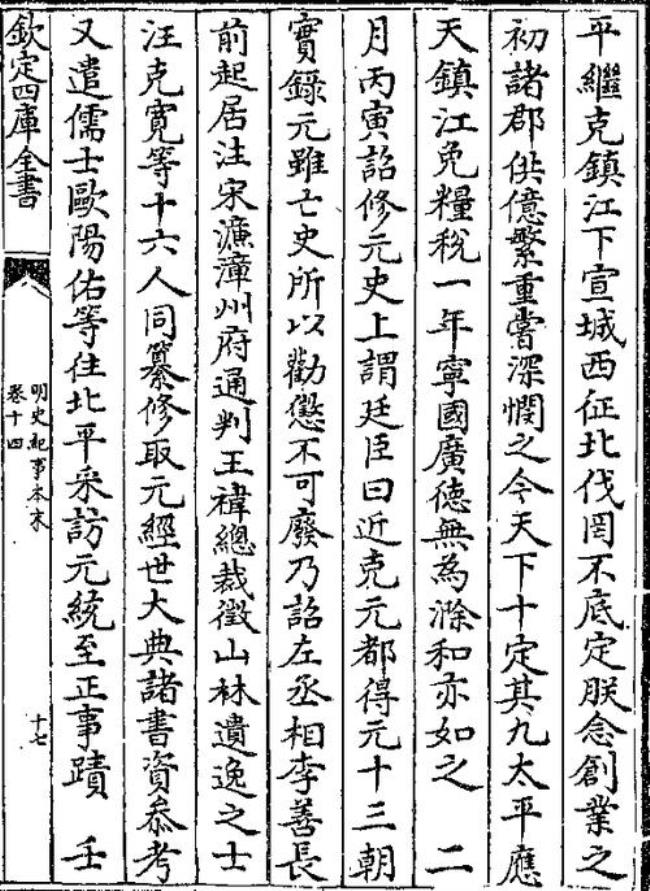 平繼克鎮江下宣城西征北伐罔不底定朕念創業之
初諸郡供億繁重嘗深憫之今天下十定其九太平應
天鎮江免糧稅一年寧國廣德無為滁和亦如之　二
月丙寅詔修元史上謂廷臣曰近克元都得元十三朝
實錄元雖亡史所以勸懲不可廢乃詔左丞相李善長
前起居注宋濂漳州府通判王禕總裁徵山林遺逸之士
汪克寬等十六人同纂修取元經世大典諸書資叅考
又遣儒士歐陽佑等往北平采訪元統至正事蹟　壬
欽定四庫全書
明史紀事本末
卷十四
十七